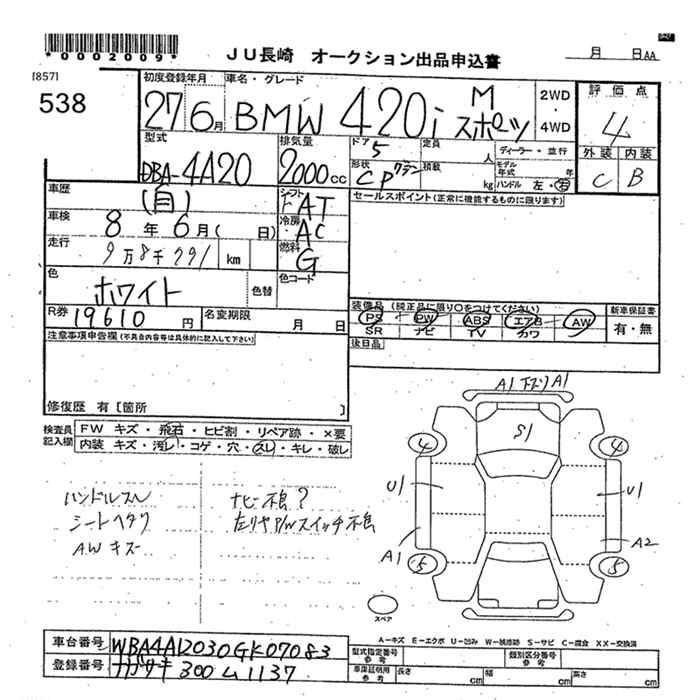 *0002009*
JU長崎 オークション出品申込書
月 日 AA
[857]
538
初度登録年月 車名・グレード
27 6月 BMW 420i Mスポーツ
2WD ・ 4WD
評価点
4
外装 内装
C B
型式 排気量 ドア 定員 ディーラー・並行
DBA-4A20 2000cc 5 人
形状 積載 モデル年式 年
CP クーペ kg ハンドル 左・右
車歴 シフト セールスポイント(正常に機能するものに限ります)
(自) F AT
車検 冷房
8年 6月( 日) AC
走行 燃料
9万8千991 km G
色 色替 色コード
ホワイト
R券 名変期限
19610円 月 日
装備品 (純正品に限り○をつけてください) 新車保証書
PS PW ABS エアB AW 有・無
SR ナビ TV カワ
後日品
注意事項申告欄(不具合内容等は具体的に記入して下さい)
修復歴 有 [箇所 ]
検査員記入欄
FW キズ・飛石・ヒビ割・リペア跡・×要
内装 キズ・汚レ・コゲ・穴・スレ・キレ・破レ
ハンドルスレ ナビ不良?
シートヘタリ 左リヤP/Wスイッチ不良
AWキズ
A1 下ズリ A1
S1
4 4
U1 U1
A1 A2
5 5
スペア
A-キズ E-エクボ U-凹み W-補修跡 S-サビ C-腐食 XX-交換済
車台番号 WBA4A12030GK07083
登録番号 ナガサキ 300 ム 1137
型式指定番号 参考 類別区分番号 参考
車庫証明用 参考 長さ cm 幅 cm 高さ cm